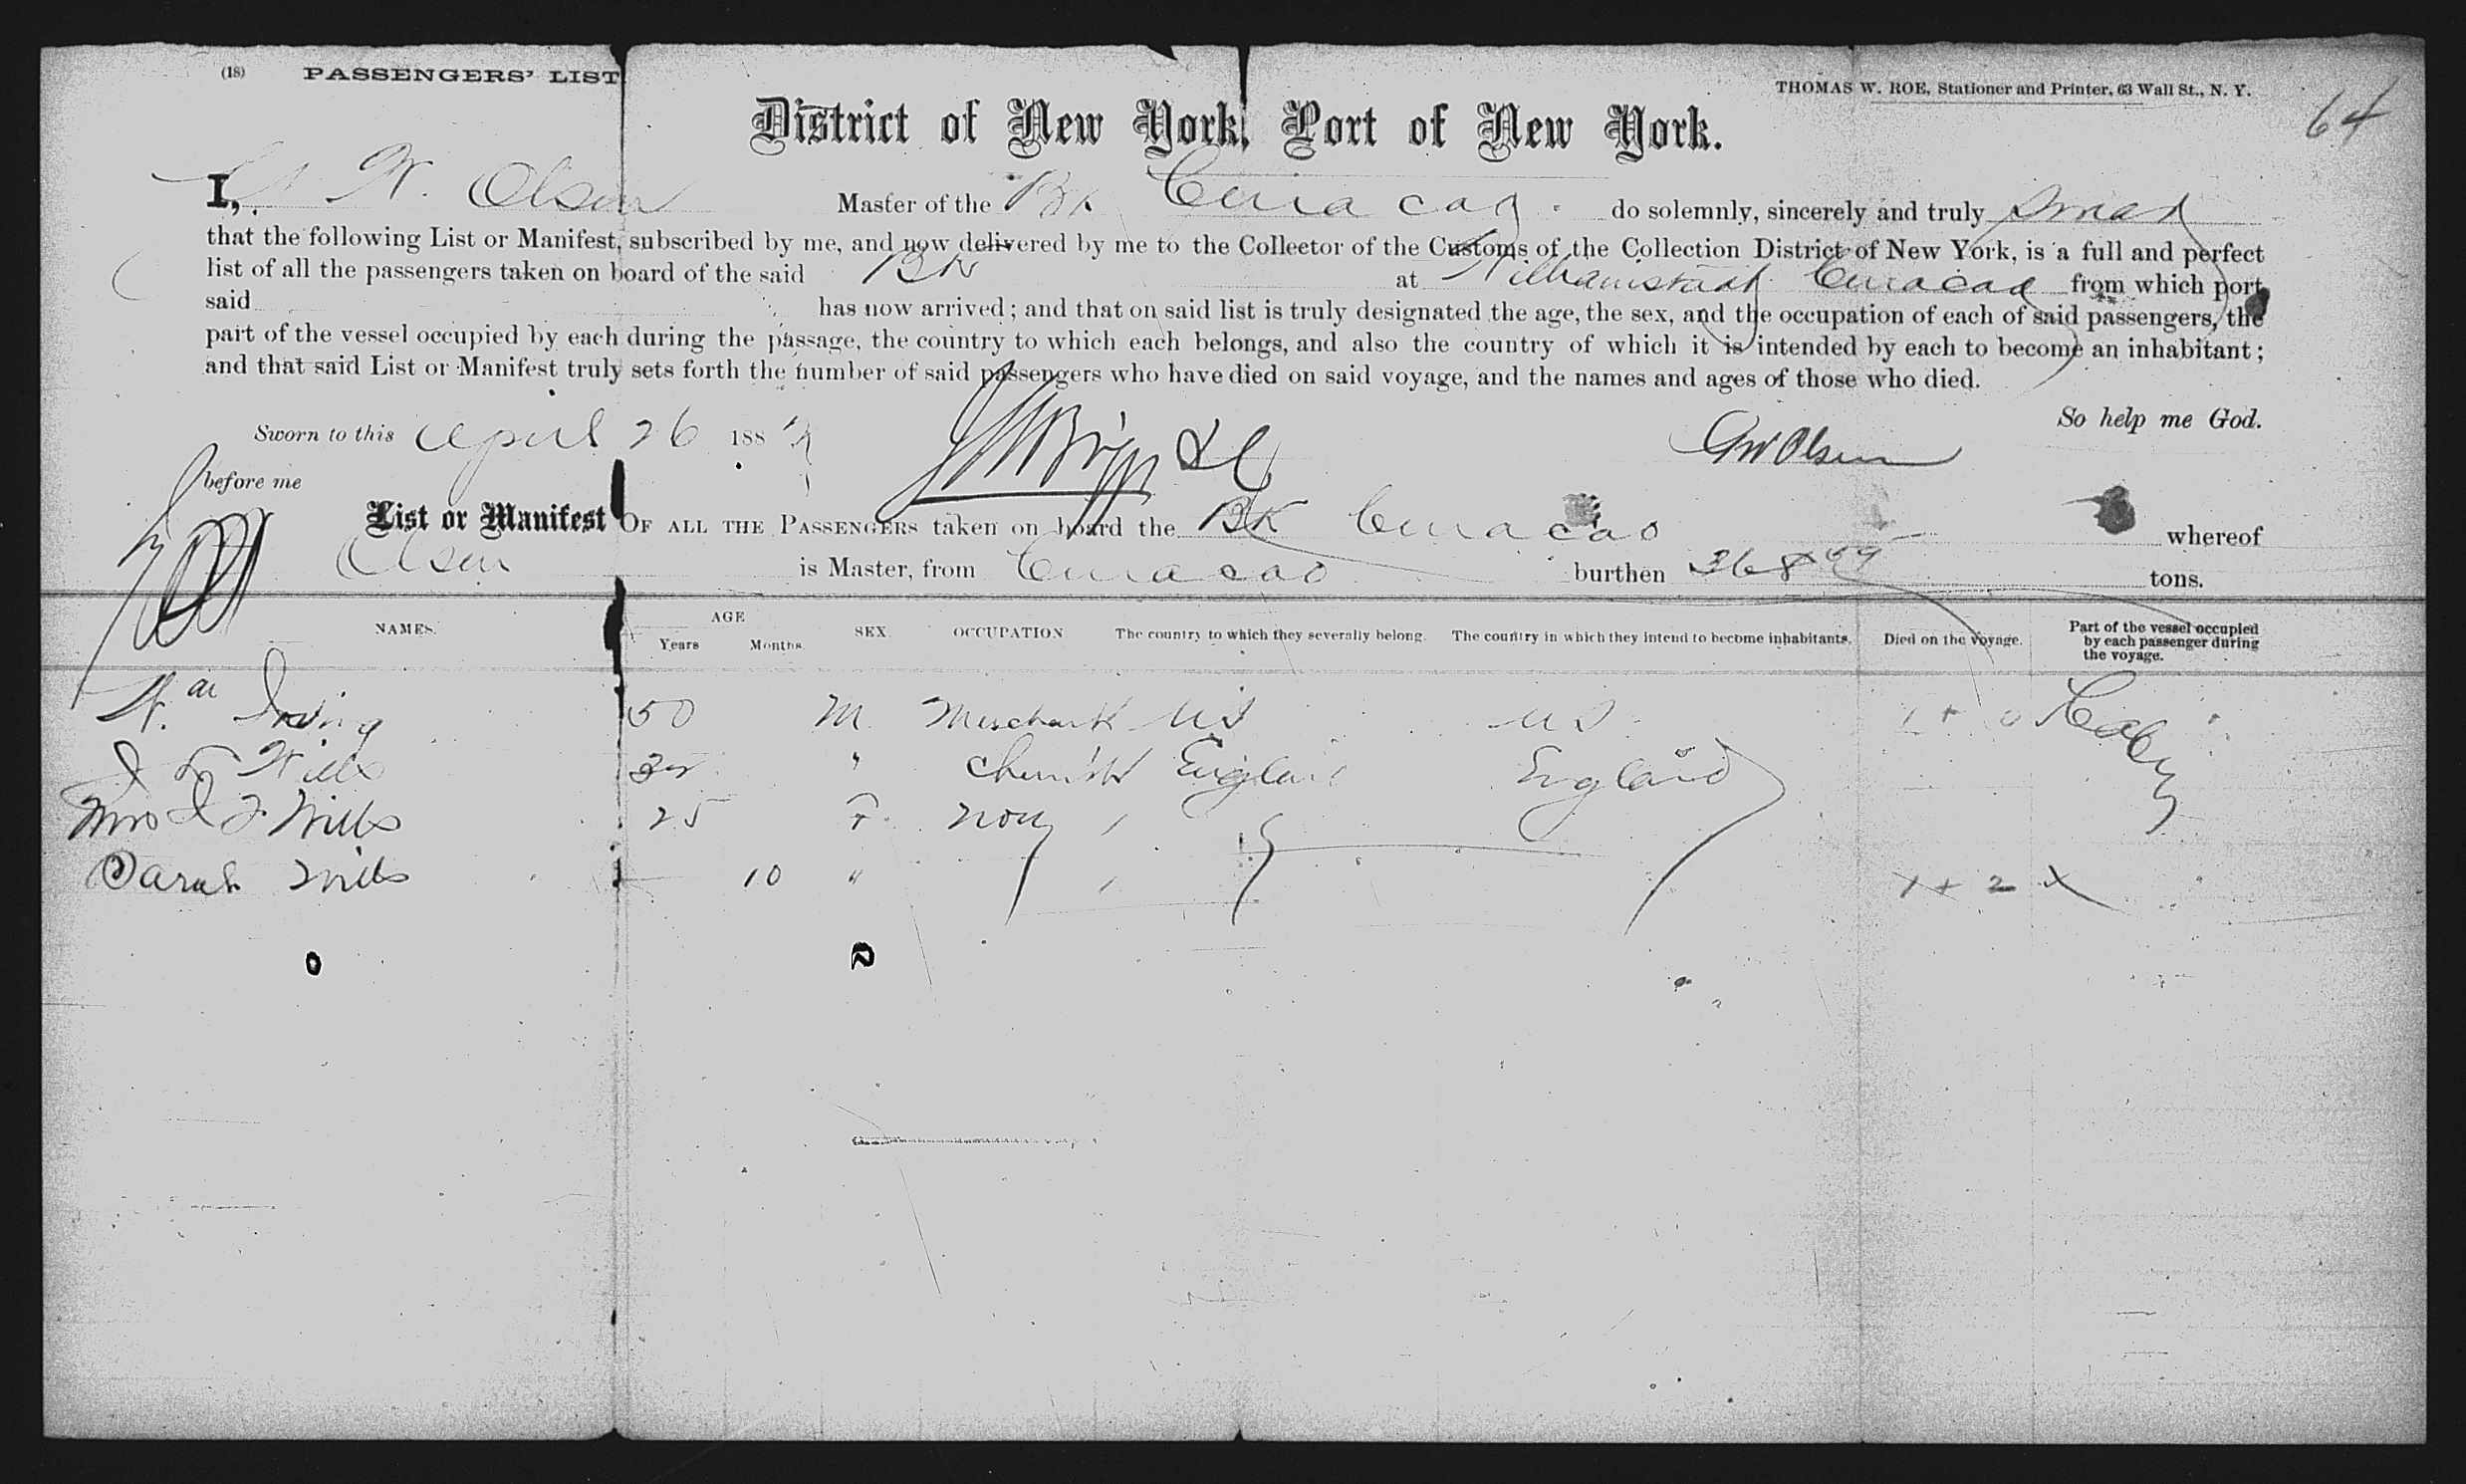 (18) PASSENGERS' LIST
THOMAS W. ROE, Stationer and Printer, 63 Wall St., N. Y.
64
District of New York, Port of New York.
I, G W. Olsen Master of the Bk Curacao do solemnly, sincerely and truly swear
that the following List or Manifest, subscribed by me, and now delivered by me to the Collector of the Customs of the Collection District of New York, is a full and perfect
list of all the passengers taken on board of the said Bk at Williamstadt Curacao from which port
said has now arrived; and that on said list is truly designated the age, the sex, and the occupation of each of said passengers, the
part of the vessel occupied by each during the passage, the country to which each belongs, and also the country of which it is intended by each to become an inhabitant;
and that said List or Manifest truly sets forth the number of said passengers who have died on said voyage, and the names and ages of those who died.
So help me God.
Sworn to this April 26 188
GW Olsen
before me
List or Manifest OF ALL THE PASSENGERS taken on board the BK Curacao whereof
Olsen is Master, from Curacao burthen 368 tons.
NAMES. AGE Years Months SEX OCCUPATION The country to which they severally belong. The country in which they intend to become inhabitants. Died on the voyage. Part of the vessel occupied by each passenger during the voyage.
Irving 50 M Merchant US US
Wills " Chemist England England
Mrs Wills 25 F
Sarah Wills 10 "